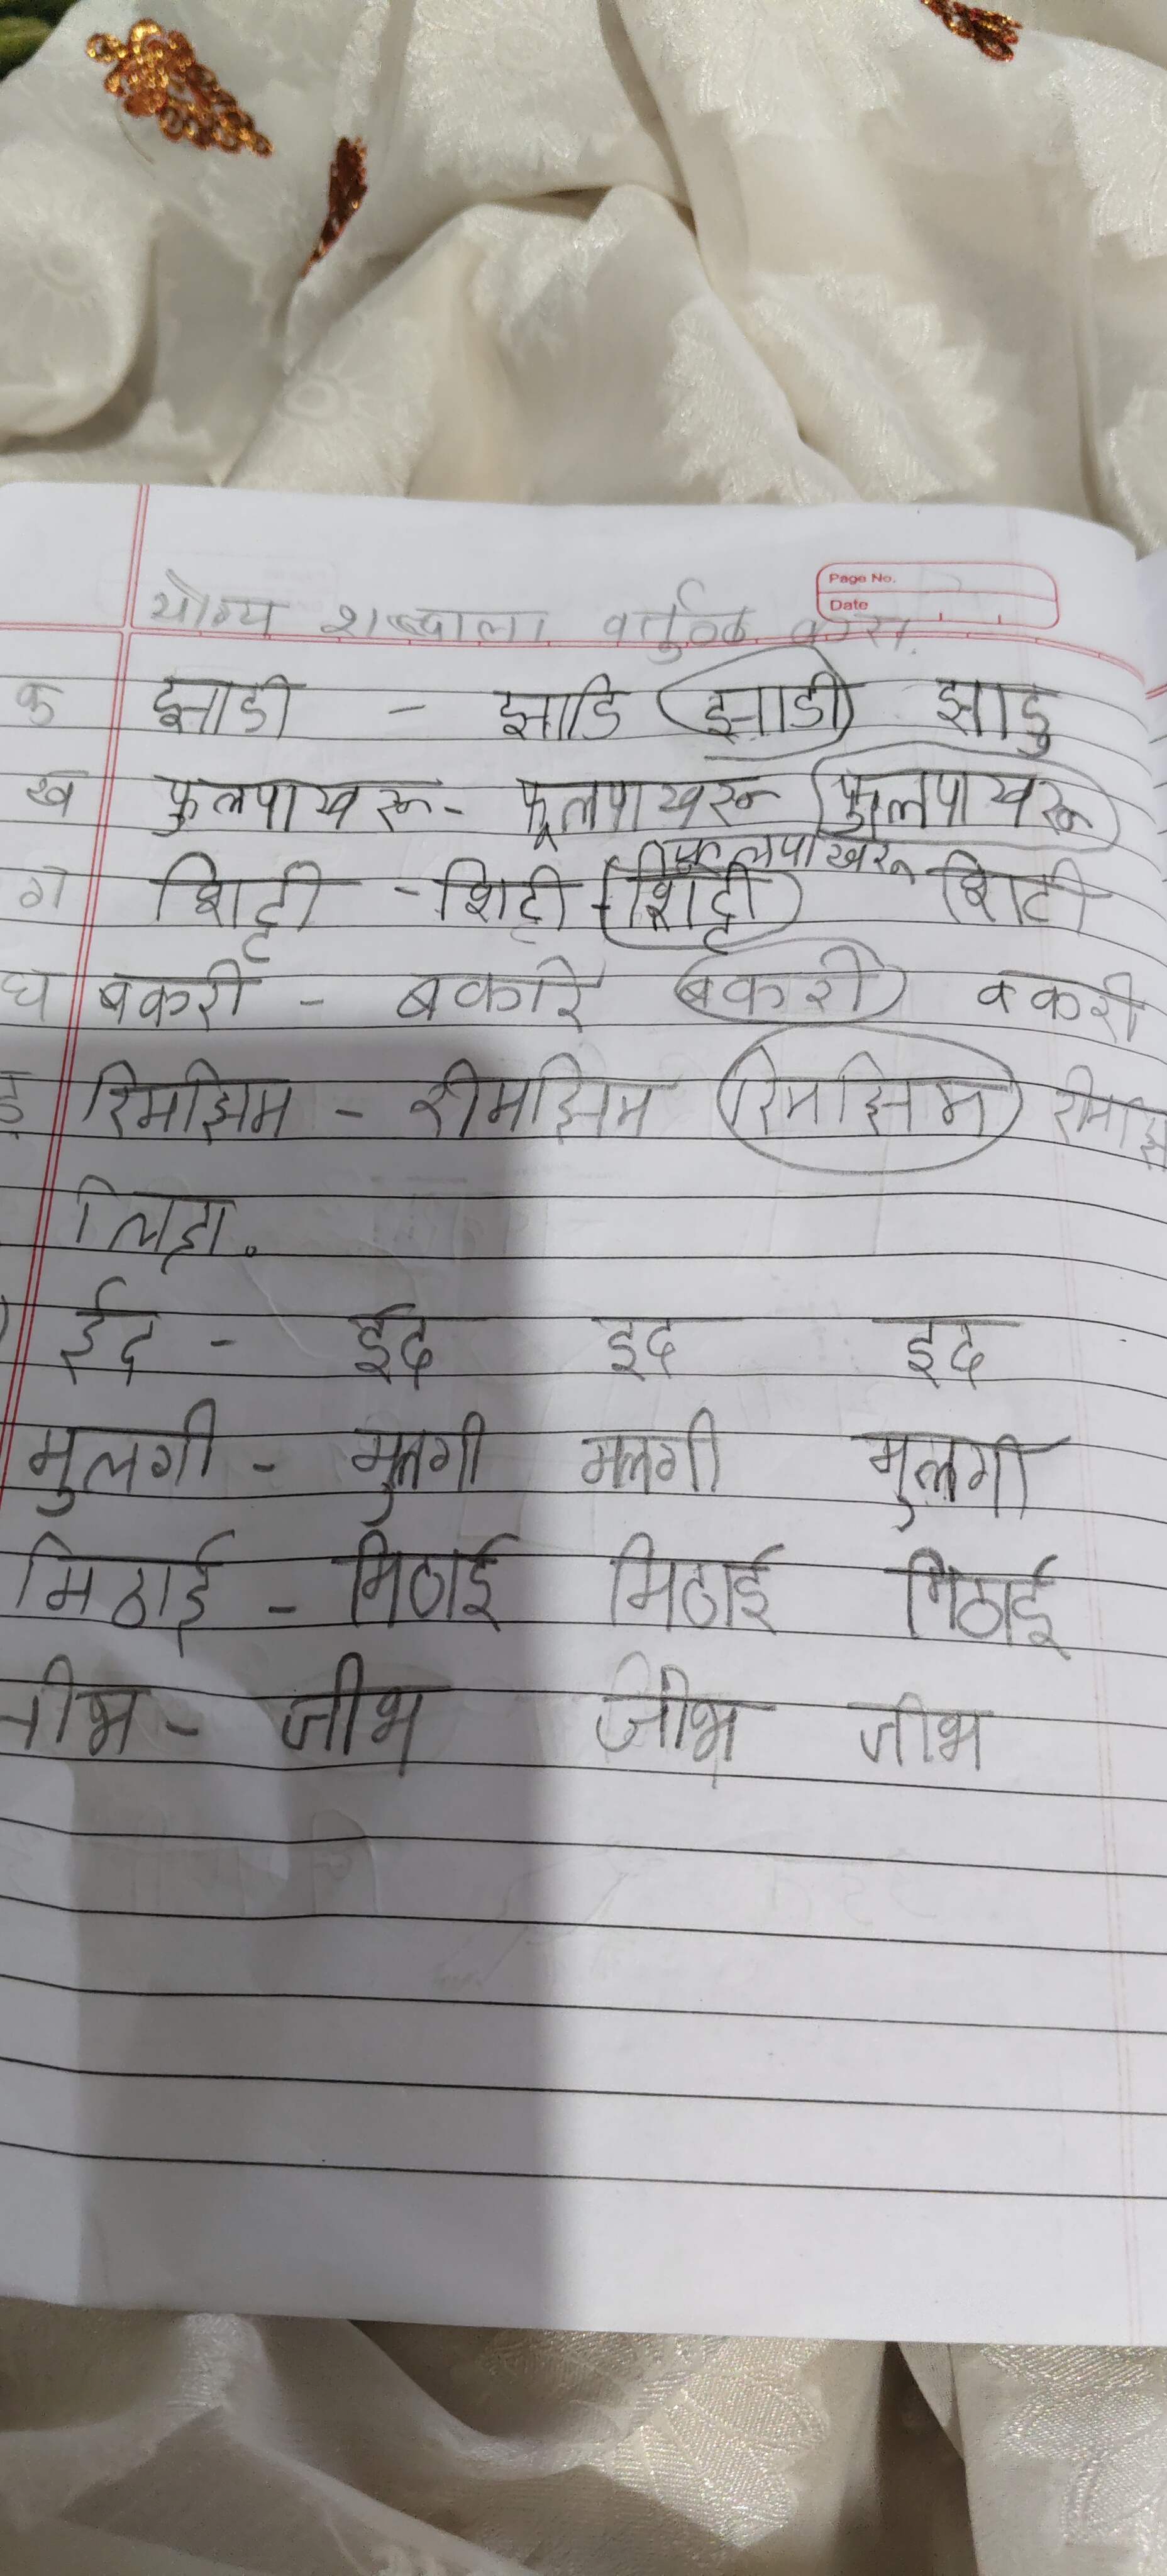 Page No.
Date
योग्य शब्दाला वर्तुळ करा.
क झाडी - झाडि झाडी झाडु
ख फुलपाखरू - फूलपाखरू फुलपाखरू
फुलपाखरू
ग शिट्टी - शिटी शिट्टी शिटी
घ बकरी - बकरि बकरी वकरी
ङ रिमझिम - रीमझिम रिमझिम
लिहा.
ईद - ईद इद इद
मुलगी - मुलगी मलगी मुलगी
मिठाई - मिठाई मिठाई मिठाई
जीभ - जीभ जीभ जीभ